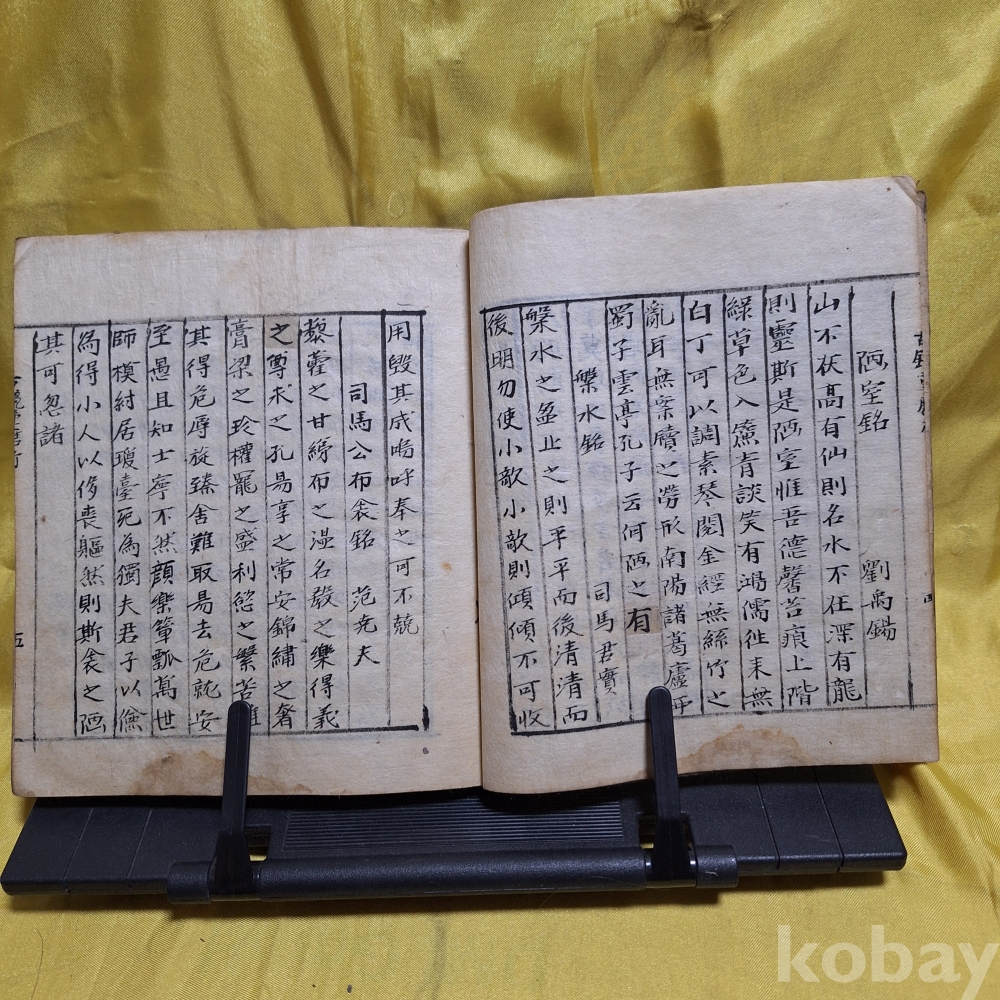 陋室銘 劉禹錫
山不在髙有仙則名水不在深有龍
則靈斯是陋室惟吾德馨苔痕上階
綠草色入簾青談笑有鴻儒徃来無
白丁可以調素琴閱金經無絲竹之
亂耳無案牘之勞形南陽諸葛廬西
蜀子雲亭孔子云何陋之有
槃水銘 司馬君實
槃水之盈止之則平平而後清清而
後明勿使小欹小欹則傾傾不可收
用毁其成嗚呼奉之可不兢
司馬公布衾銘 范尭夫
藜藿之甘綈布之溫名教之樂得義
之尊求之孔易享之常安錦繡之奢
膏梁之珍權寵之盛利慾之繁苦難
其得危辱旋臻舍難取易去危就安
至愚且知士寧不然顔樂簞瓢萬世
師模紂居瓊臺死為獨夫君子以儉
為得小人以侈喪軀然則斯衾之陋
其可忽諸
五
kobay